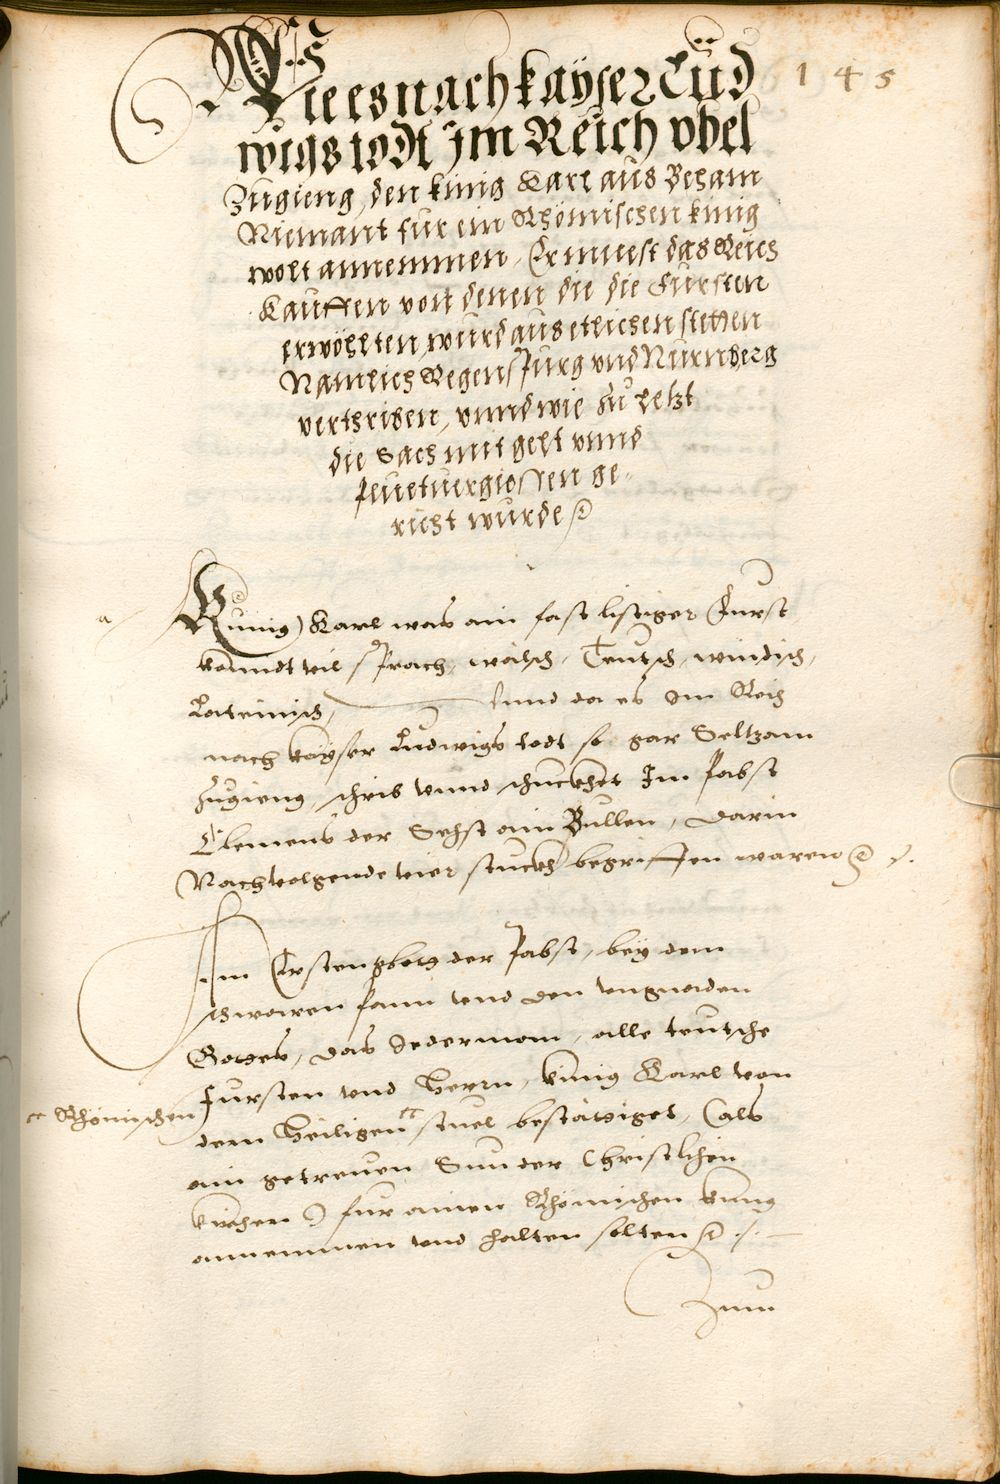 145
Wie es nach kaÿser Lüd
wigs todt Im Reich vbel
Zugieng, den künig Karl aus Beham
Niemant für ein Rhömischen künig
wolt annemmen, Er muest das Reich
Kauffen von denen die die Fürsten
erwöhlten, wurd aus etlichen stetten
Namlich Regenspurg vnd Nürnberg
vertriben, vnnd wie zu letzt
die Sach mit gelt vnnd
pluetuergiossen ge-
richt wurde
a
Kunig Karl was ain fast listiger Furst
konndt vil sprach, wälsch, Teutsch, windisch,
Lateinisch, vnnd da es Im Reich
nach kaÿser Ludwigs todt so gar Seltzam
Zugieng, schrib vnnd schuckhet Im Pabst
Clemens der Sechst ain Bullen, darin
Nachvolgende vier stuckh begriffen waren
Im Ersten gebotz der Pabst, beÿ dem
schwären pann vnd den vngnaden
Gottes, das Jederman, alle teutsche
Fursten vnd Herrn, künig Karl von
Rhömischen
dem Heiligen stuel bestättiget, (als
ain getreuen Sun der Christlichen
kirchen) für ainen Rhömischen kunig
annemmen vnd halten solten
Zum